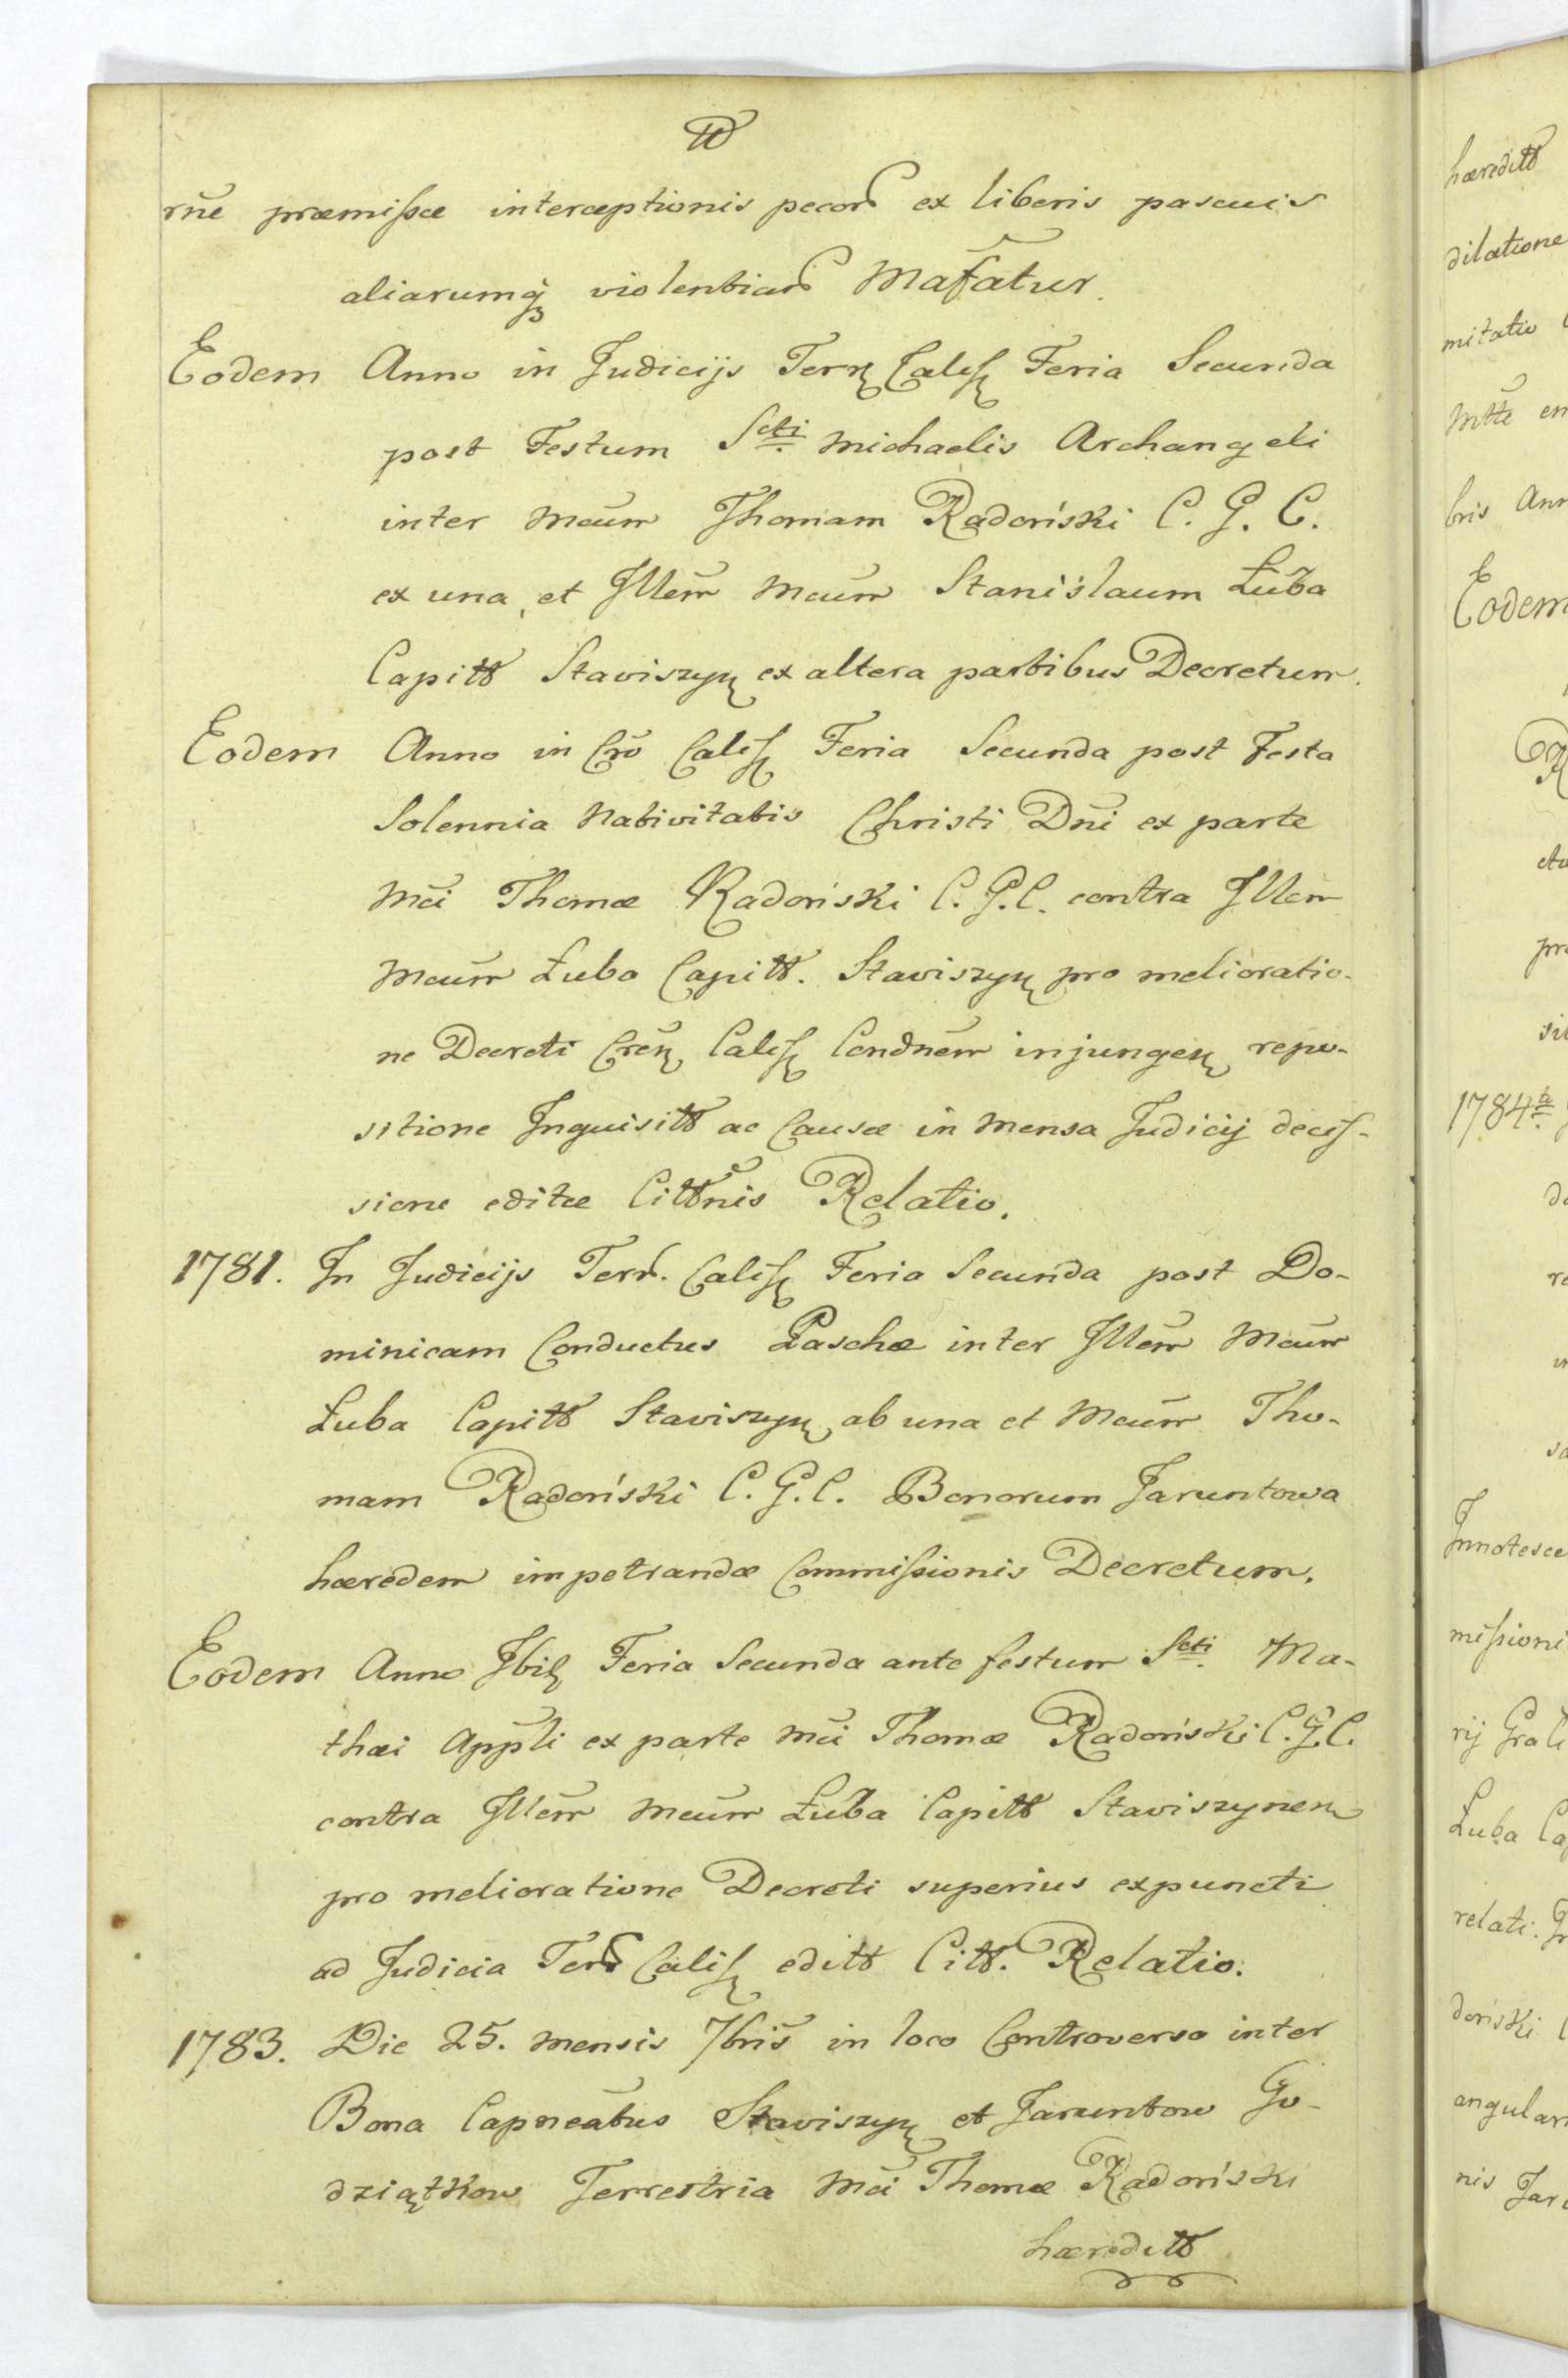 rñe præmissæ interceptionis pecor ex liberis pascuis
aliarumq violentiar Mafatur.
Eodem Anno in Judicijs Terr Calis Feria Secunda
post Festum Scti Michaelis Archangeli
inter Mcum Thomam Radoński C. G. C.
ex una, et Illem Mcum Stanislaum Łuba
Capitt Staviszyn ex altera partibus Decretum.
Eodem Anno in Cro Calis Feria Secunda post Festa
Solennia Nativitatis Christi Dni ex parte
Mci Thomæ Radoński C. G. C. contra Illem
Mcum Łuba Capitt. Staviszyn pro melioratio-
ne Decreti Cren Calis Condnem injungen repo-
sitione Inquisitt ac Causæ in mensa Judicij decis-
sione editæ Cittnis Relatio.
1781. In Judicijs Terr. Calis Feria Secunda post Do-
minicam Conductus Paschæ inter Illem Mcum
Łuba Capitt Staviszyn ab una et Mcum Tho-
mam Radoński C. G. C. Bonorum Jaruntowa
hæredem impetrandæ Commissionis Decretum.
Eodem Anno Ibid Feria Secunda ante festum Scti Ma-
thæi Appli ex parte Mci Thomæ Radoński C. G. C.
contra Illem Mcum Łuba Capitt Staviszynen
pro melioratione Decreti superius expuncti
ad Judicia Terr Calis editt Citt. Relatio.
1783. Die 25. mensis 7bris in loco Controverso inter
Bona Capneatus Staviszyn et Jaruntow Go-
dziątkow Terrestria Mci Thomæ Radoński
hæreditt
hæreditt
dilatione
mitatio
Mtte
bris
Eodem
1784
Innotesce
missioni
rij
Łuba
relati.
doński
angular
nis